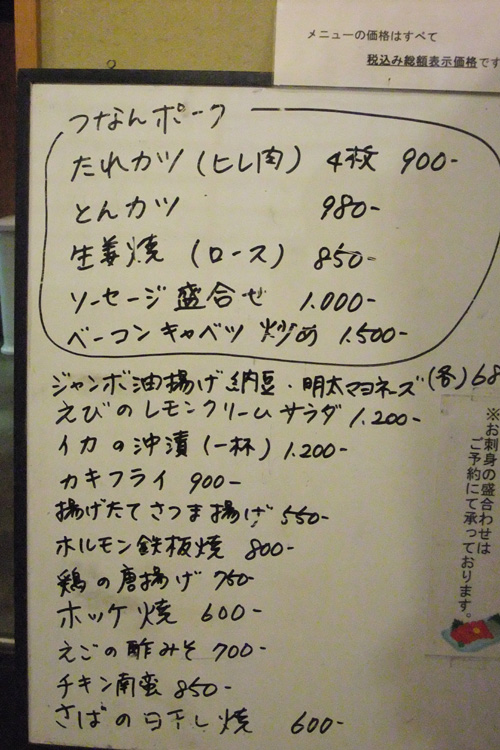 メニューの価格はすべて
税込み総額表示価格です
つなんポーク
たれカツ(ヒレ肉) 4枚 900-
とんカツ 980-
生姜焼 (ロース) 850-
ソーセージ盛合せ 1.000-
ベーコンキャベツ炒め 1.500-
ジャンボ油揚げ納豆・明太マヨネーズ(各)68
えびのレモンクリームサラダ 1.200-
イカの沖漬(一杯) 1.200-
カキフライ 900-
揚げたてさつま揚げ 550-
ホルモン鉄板焼 800-
鶏の唐揚げ 750-
ホッケ焼 600-
えごの酢みそ 700-
チキン南蛮 850-
さばの日干し焼 600-
※お刺身の盛合わせは
ご予約にて承っております。